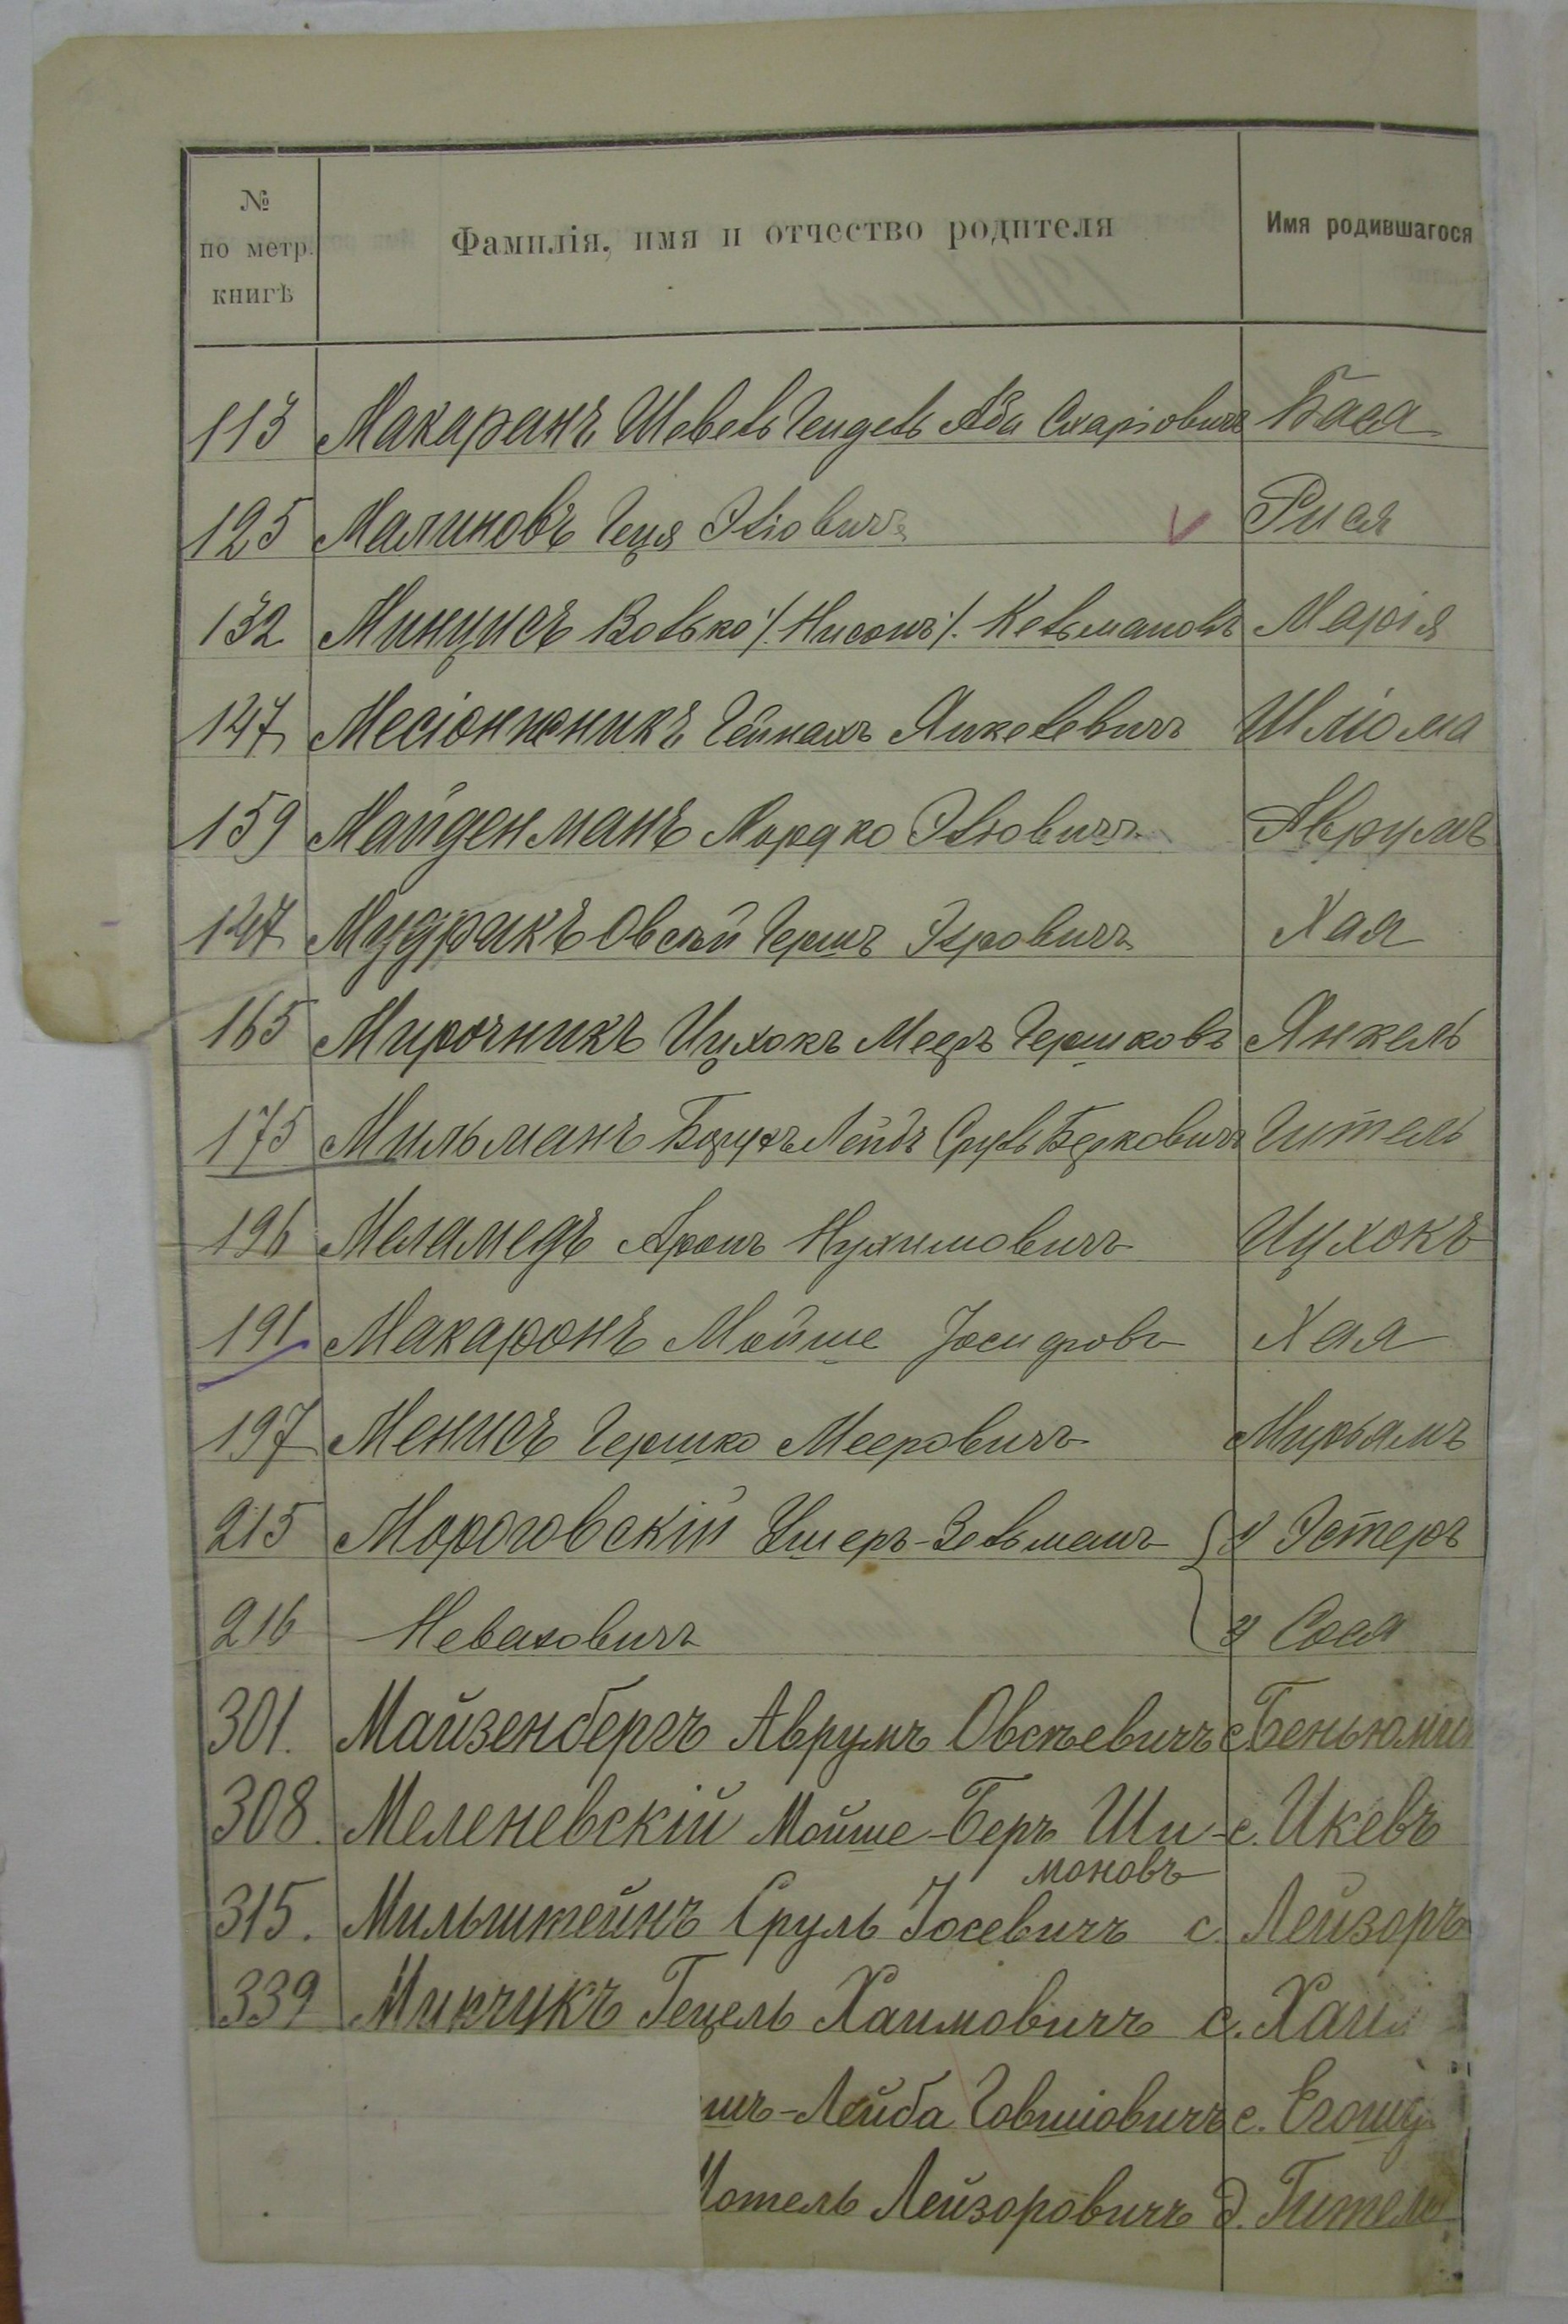 №
по метр.
книгѣ
Фамилія, имя и отчество родителя
Имя родившагося
113 Макаранъ Шевель Гендель Аба Схаріовичъ Бася
125 Малиновъ Геця Эліовичъ Рися
132 Минцисъ Волько /. Нисонъ /. Кельмановъ Марія
147 Гейнахъ Янкелевичъ Шліома
159 Майденманъ Мордко Эліовичъ Аврумъ
147 Мудракъ Овсѣй Гершъ Хая
165 Мирочникъ Ицхокъ Мееръ Гершковъ Янкель
175 Мильманъ Борухъ Лейбъ Сруль Берковичъ Гитель
196 Меламедъ Аронъ Нухимовичъ Ицхокъ
191 Макаронъ Мойше Іосифовъ Хая
197 Менисъ Гершко Мееровичъ Мирьямъ
215 Мороговскій Ушеръ-Зельманъ 1) Эстеръ
216 Неваховичъ 2) Сося
301. Майзенбергъ Аврумъ Овсѣевичъ с. Беньюмин
308. Меленевскій Мойше-Беръ Ши- с. Икевъ
моновъ
315. Мильштейнъ Сруль Іосевичъ с. Лейзоръ
339 Минчукъ Гецель Хаимовичъ с. Хаи
шъ-Лейба Говшіовичъ с. Егошу
Мотель Лейзоровичъ д. Гитель